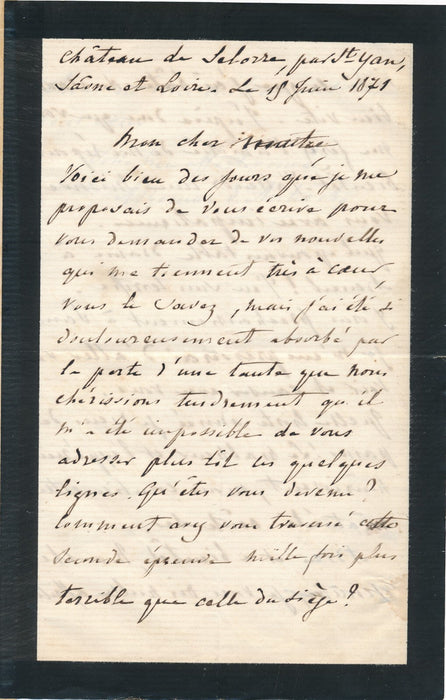 Château de Selorre, par St Yan,
Saône et Loire. Le 15 Juin 1871
Mon cher
Voici bien des jours que je me
proposais de vous écrire pour
vous demander de vos nouvelles
qui me tiennent très à cœur,
vous le savez, mais j'ai été si
douloureusement absorbé par
la perte d'une tante que nous
chérissions tendrement qu'il
m'a été impossible de vous
adresser plus tôt ces quelques
lignes. Qu'êtes vous devenu?
Comment avez vous traversé cette
seconde épreuve mille fois plus
terrible que celle du siège?